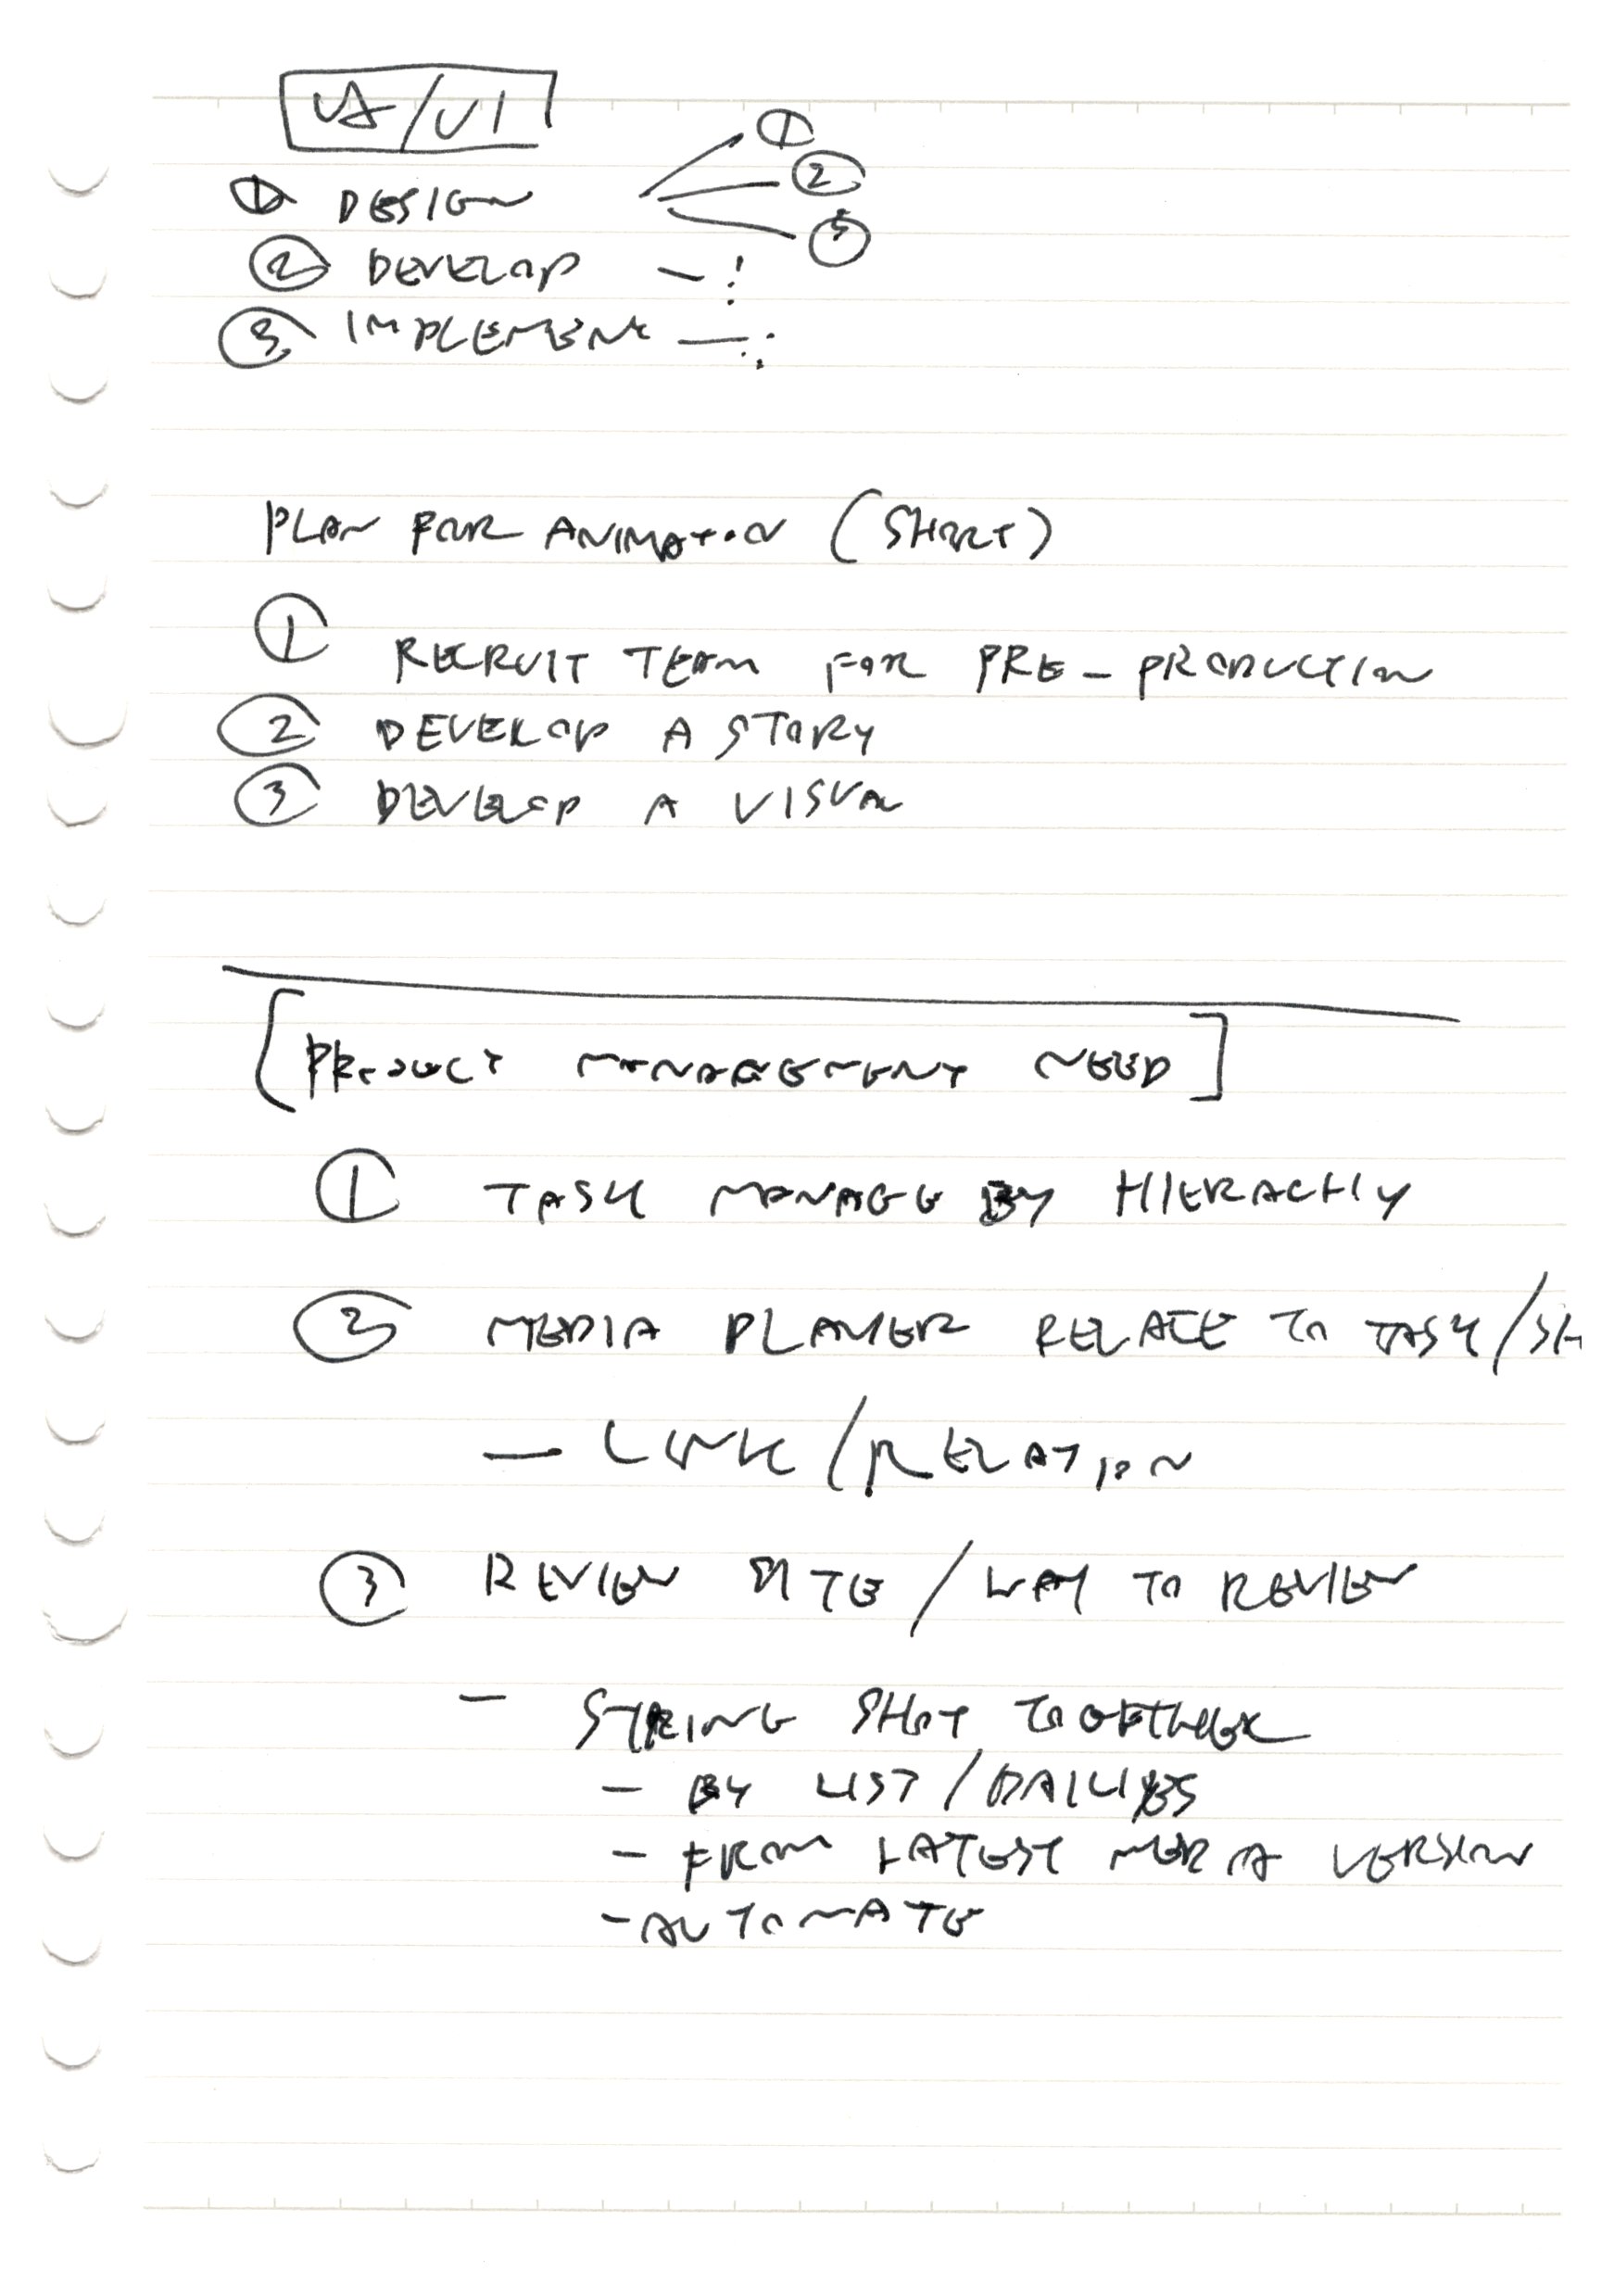 UX/UI
① DESIGN ①
②
③
② DEVELOP - :
③ IMPLEMENT - :
PLAN FOR ANIMATION (SHORT)
① RECRUIT TEAM FOR PRE-PRODUCTION
② DEVELOP A STORY
③ DEVELOP A VISUAL
[PRODUCT MANAGEMENT NEED]
① TASK MANAGE BY HIERACHY
② MEDIA PLAYER RELATE TO TASK/SH
- LINK/RELATION
③ REVIEW SITE/WAY TO REVIEW
- STRING SHOT TOGETHER
- BY LIST/DAILIES
- FROM LATEST MEDIA VERSION
- AUTOMATE